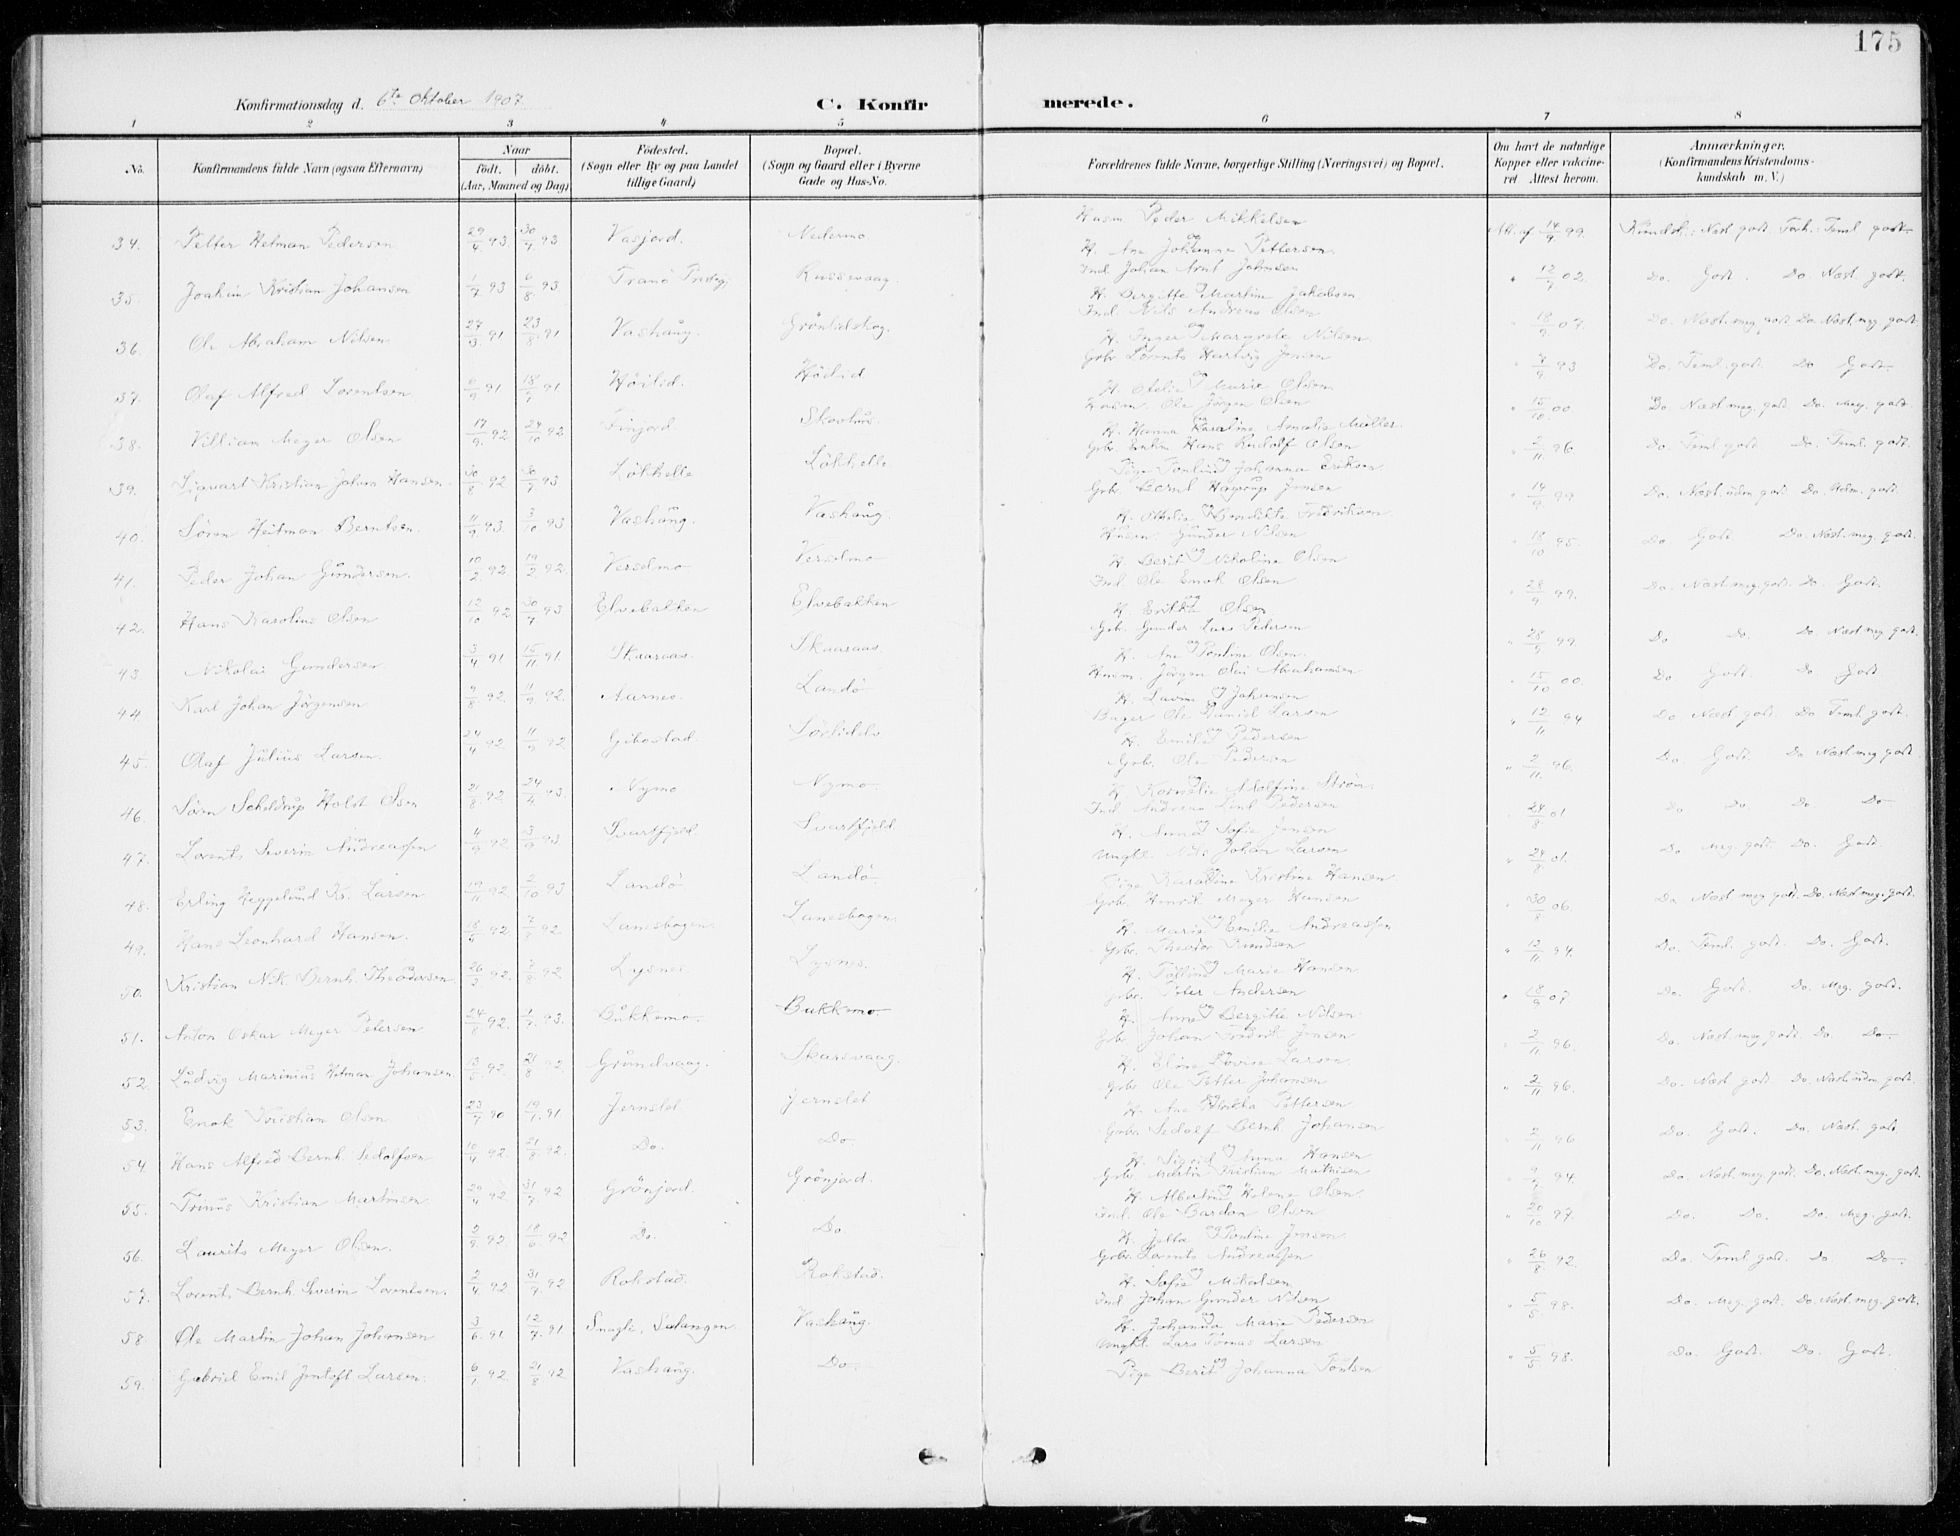 175
Konfirmationsdag d. 6te Oktober 1907
C. Konfir merede.
1 2 3 4 5 6 7 8
No.
Konfirmandens fulde Navn (ogsaa Efternavn)
Naar
født. døbt.
(Aar, Maaned og Dag)
Fødested.
(Sogn eller By og paa Landet
tillige Gaard)
Bopæl.
(Sogn og Gaard eller i Byerne
Gade og Hus-No.
Forældrenes fulde Navne, borgerlige Stilling (Næringsvei) og Bopæl.
Om havt de naturlige
Kopper eller vakcine-
ret Attest herom.
Anmærkninger.
(Konfirmandens Kristendoms-
kundskab m. V.)
34. Petter Heitman Pedersen 29/4 93 30/7 93 Vasjord. Nedermo Husm Peder Mikkelsen og H. Ane Johanne Pettersen Att. af 14/9 99. Kundsk.: Næst godt Forh.: Teml. godt
35. Joakim Kristian Johansen 1/7 93 6/8 93 Tranö Prestegj. Russevaag. Ind. Johan Arnt Johnsen H. Bergitte Martine Jakobsen " 12/9 02. Do. Godt. Do. Næst. godt
36. Ole Abraham Nilsen 27/3 91 23/8 91 Vashaug. Gröntidskog. Ind. Nils Andreas Olsen og H. Inger Margrete Nilsen " 18/9 07. Do. Næst. meg. godt Do. Næst. meg. godt
37. Olaf Alfred Lorentsen 18/7 91 Höilid. Höilid Gbr. Lorents Hartvig Jensen og H. Otelie Marie Olsen 93 Do. Teml. godt. Do Godt
38. Villian Meyer Olsen 17/9 92 24/10 92 Finjord Skovhus Husm. Ole Jörgen Olsen og H. Hanna Karoline Amalie Müller " 15/10 00 Do Næst meg. godt Do. Meg. godt
39. Sigvart Kristian Johan Hansen 30/8 92 30/7 93 Lökhelle Lökhelle Gbr. Enkm Hans Rudolf Olsen og Pige Pauline Johanna Eriksen " 2/11 96 Do. Teml godt Do. Teml. godt
40. Sören Heitman Berntsen. 11/9 93 3/10 93 Vashaug. Vashaug Gbr. Bernt Hagerup Jensen H. Othelie Benedikte Fredriksen " 14/9 99 Do. Næst. udm. godt Do. Udm. godt
41. Peder Johan Gundersen. 10/2 92 19/2 92. Verselmo Verselmo Husm. Gunder Nilsen og H. Berit Nikoline Olsen " 18/10 95. Do Godt Do. Næst. meg. godt.
42. Hans Karolius Olsen 12/10 92 30/7 93 Elvebakken Elvebakken Ind. Ole Enok Olsen og H. Erikka Olsen " 28/9 99. Do. Næst meg. godt. Do Godt.
43. Nikolai Gundersen 3/4 91 15/11 91. Skaaraas Skaaraas Gbr. Gunder Lars Pedersen H. Ane Pauline Olsen. " 28/9 99 Do Do. Do Næst meg. godt.
44. Karl Johan Jörgensen 92. 11/9 92. Aarnes. Landö Husm. Jörgen Olai Abrahamsen og H. Lavine Johansen " 15/10 00. Do Godt. Do Godt
45. Olaf Julius Larsen. 24/4 92 11/9 92 Gibostad. Sörlidelv Bager Ole Daniel Larsen og H. Emilie Pedersen " 12/11 94 Do Næst godt. Do Teml. godt.
46. Sören Scheldrup Holst Olsen 21/8 92 24/4 93 Nymo Nymo Gbr. Ole Pedersen og H. Kornelie Adolfine Ström. " 2/11 96. Do. Godt. Do Næst meg godt
47. Lorents Severin Andreassen 4/9 92 13/9 93 Svartfjeld Svartfjeld. Ind Andreas Lind Pedersen og H. Anna Sofie Jensen 24/8 01 Do Do. Do Do
48. Erling Heggelund Kr. Larsen 19/11 92. 2/10 93 Landö. Landö. Ungkl. Nils Johan Larsen og Pige Karoline Kristine Hansen " 24/8 01. Do Meg. godt. Do. Godt.
49. Hans Leonhard Hansen. 92 92 Lanesbogen Lanesbogen. Gbr. Henrik Meyer Hansen og H. Marie Emilie Andreassen " 30/8 06. Do Næst meg godt Do. Næst meg. godt.
50. Kristian Nik. Bernh. Theodorsen. 26/3 92. 92 Lysnes Lysnes. Gbr. Theodor Knudsen og H. Pauline Marie Hansen. " 12/11 94. Do. Teml. godt. Do. Godt.
51. Anton Oskar Meyer Petersen 92. 93. Bukkemo Bukkemo Gbr. Peter Andersen og H. Anne Bergitte Nilsen. " 18/9 07. Do. Godt. Do. Meg. godt.
52. Ludvig Marinius Hitman Johansen 92. 21/8 92. Grundvaag. Skarsvaag. Gbr. Johan Fredrik Jensen H. Eline Lovise Larsen. " 2/11 96. Do. Næst meg godt Do Do
53. Enok Kristian Olsen 23/7 90 19/7 91 Jernslet Jernslet Gbr. Ole Petter Johansen H. Ane Erikka Pettersen " 2/11 96. Do. Næst godt. Do. Næst udm. godt.
54. Hans Alfred Bernh. Sedolfsen 10/4 92 21/8 92. Do. Do. Gbr. Sedolf Bernh Johansen og H. Sigrid Anna Hansen " 2/11 96 Do. Godt. Do. Næst. godt.
55. Trinus Kristian Martinsen. 29/4 92 31/7 92 Grönjord. Grönjord. Gbr. Martin Kristian Mathisen og H. Albertine Helene Olsen. 94 Do. Næst. meg. godt. Do. Næst. meg. godt.
56. Laurits Meyer Olsen. 2/9 92. 18/6 92 Do. Do. Ind. Ole Bardon Olsen og H. Jetta Pauline Jensen " 20/10 97. Do. Do. Do. Meg. godt.
57. Lorents Bernh. Severin Lorentsen. 2/4 92 31/7 92 Rokstad. Rokstad. Gbr. Lorents Andreassen og H. Sofie Mikalsen " 26/8 92. Do. Teml godt. Do Do
58 Ole Martin Johan Johansen 3/6 91 12/7 91 Snugli, Salangen. Vashaug. Ind. Johan Gunder Nilsen og H. Johanna Marie Pedersen " 5/5 98. Do. Meg. godt. Do. Næst. meg. godt.
59. Gabriel Emil Jentoft Larsen. 6/1 92. 21/8 92 Vashaug. Do. Ungkl Lars Tomas Larsen og Pige Berit Johanna Paulsen " 5/5 98. Do. Godt. Do. Godt.